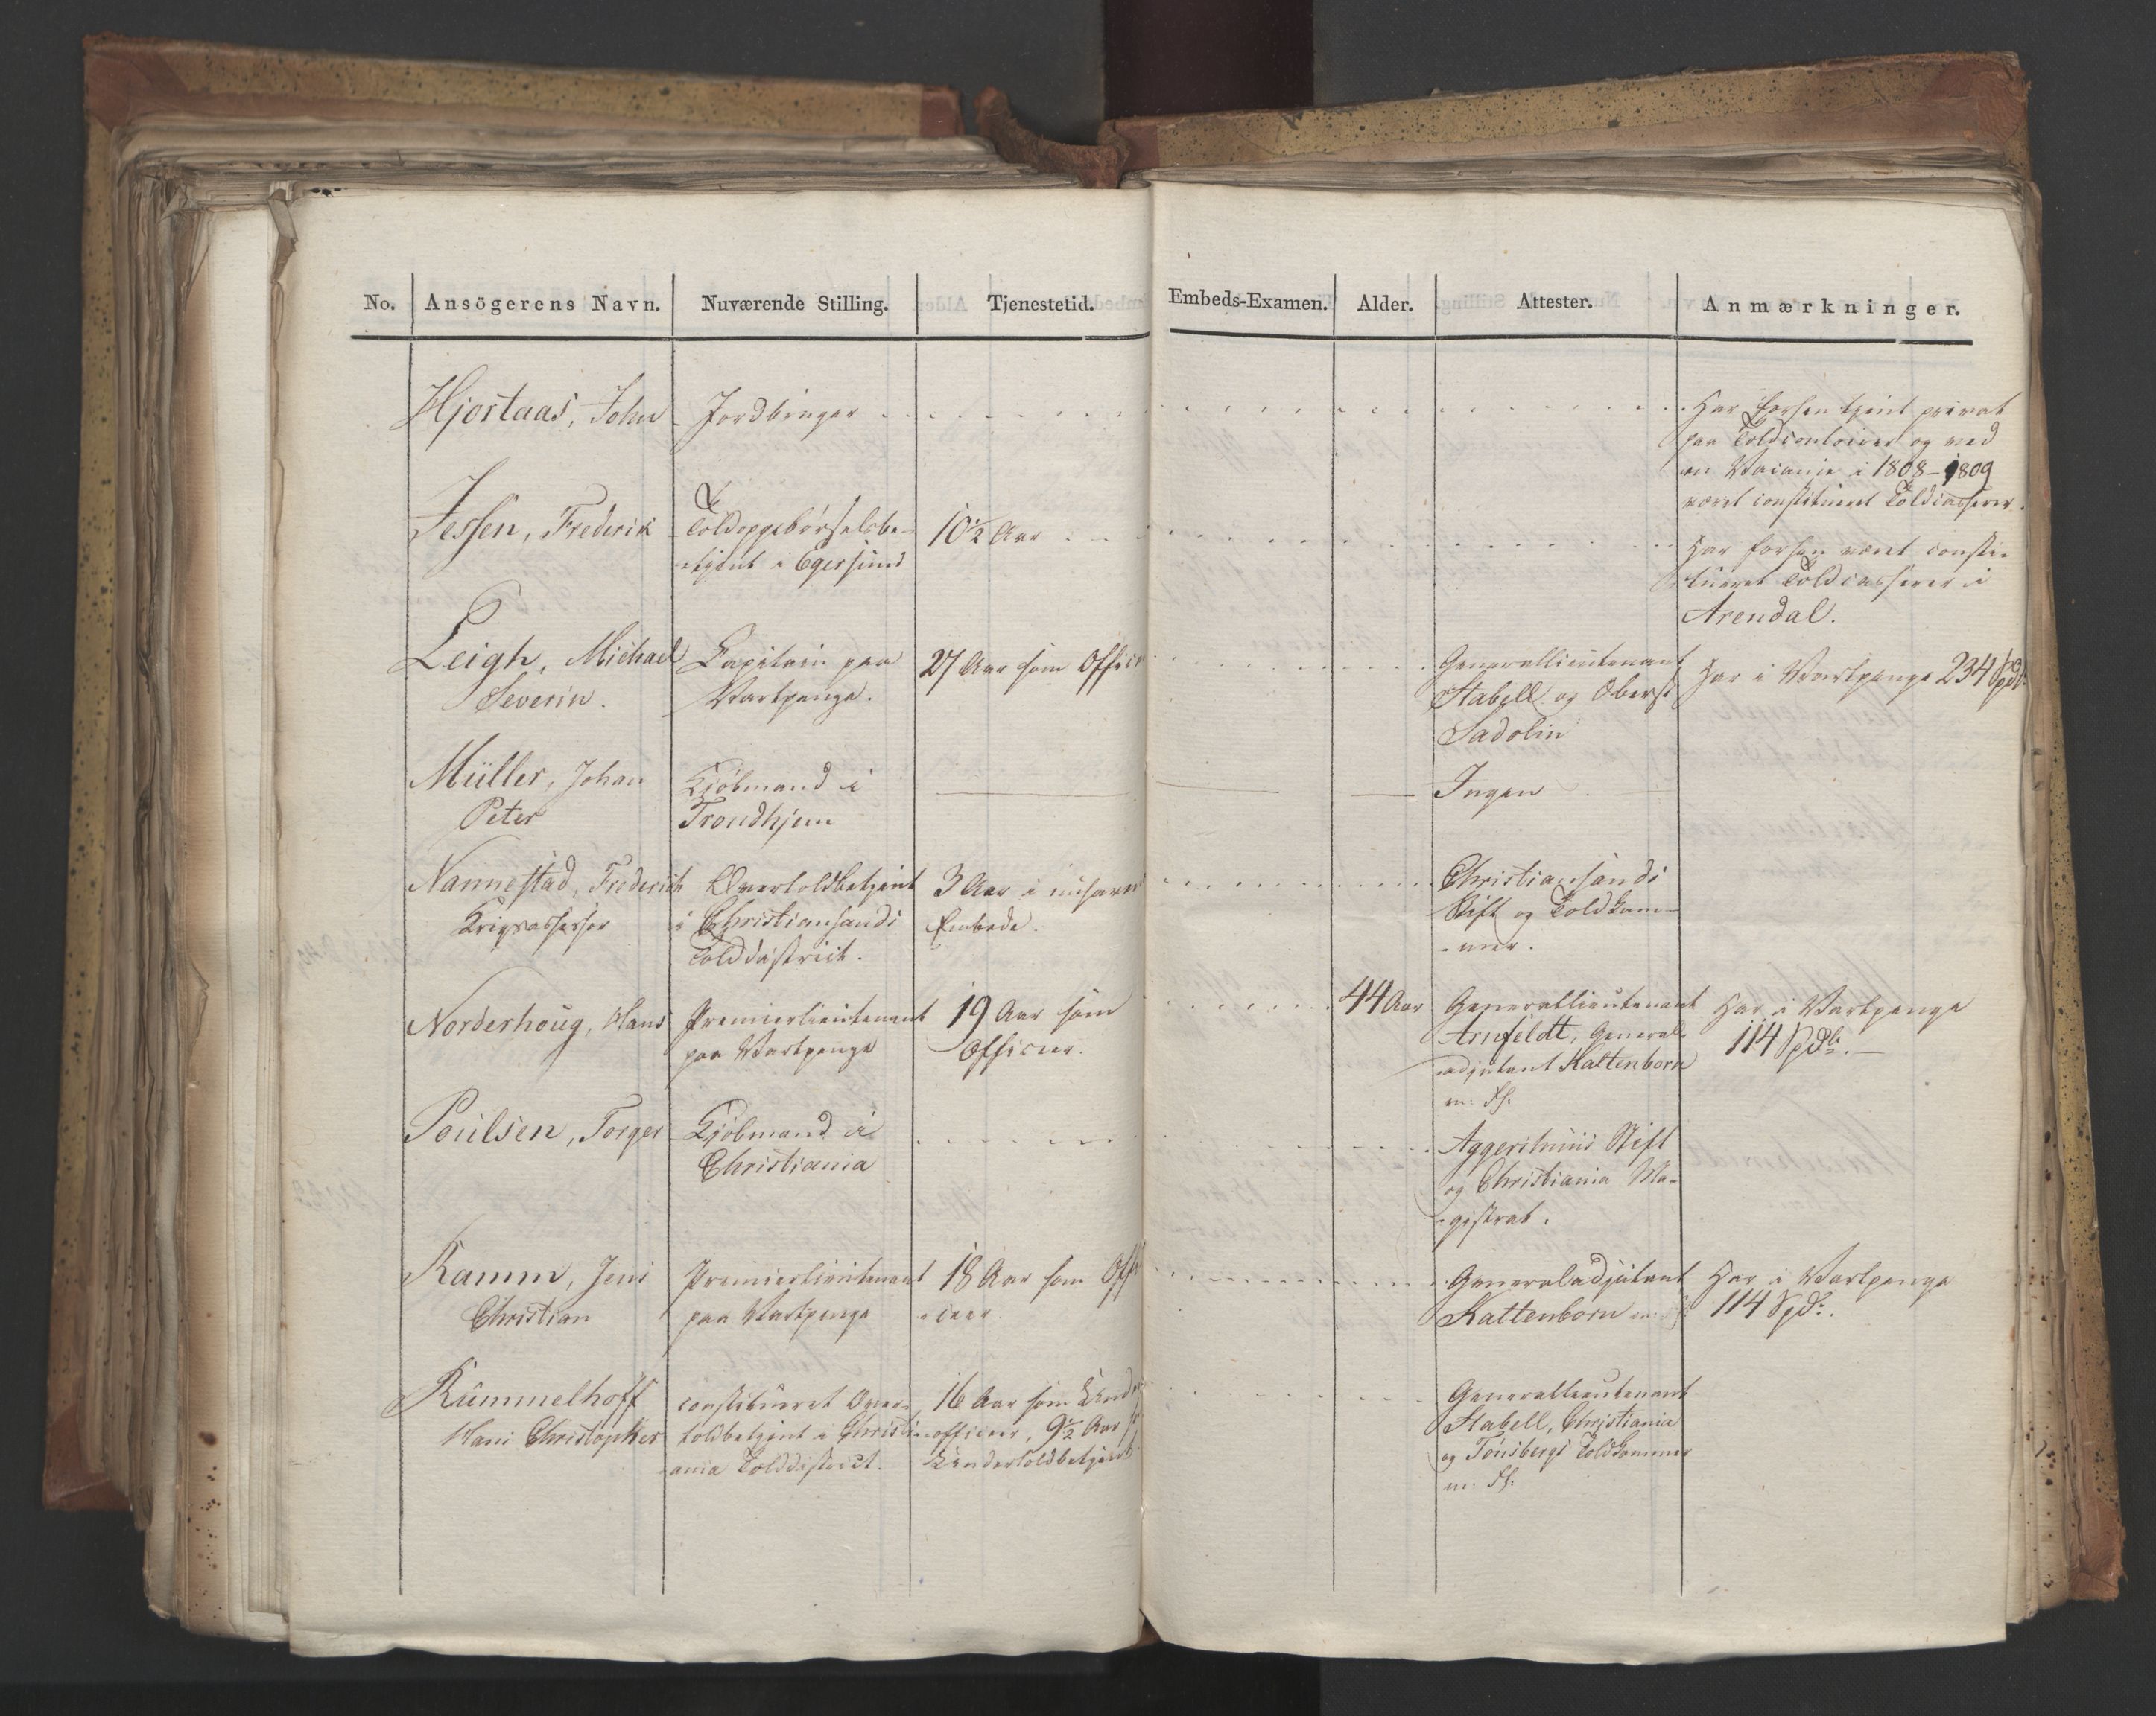 No. Ansögerens Navn. Nuværende Stilling. Tjenestetid. Embeds-Examen. Alder. Attester. Anmærkninger.
Hjortaas, John
Jordbruger
Har forhen tjent privat
paa Toldcontoirer og ved
en Vacance i 1808-1809
været constitueret Toldcasserer.
Jessen, Frederik
Toldopgebörselsbe-
-tjent i Egersund
10½ Aar
Har forhen været consti-
tueret Toldcasserer i
Arendal.
Leigh, Michael
Severin.
Capitain paa
Vartpenge.
27 Aar som Officer
Generallieutenant
Stabell og Oberst
Sadolin
Har i Vartpenge 234 Spd.
Müller, Johan
Peter
Kjöbmand i
Trondhjem
Ingen
Nannestad, Frederich
Krigsassessor
Overtoldbetjent
i Christiansands
Tolddistrict.
3 Aar i nuhavende
Embede.
Christiansands
Stift og Toldkam-
-mer.
Norderhoug, Hans
Premierlieutenant
paa Vartpenge
19 Aar som
Officer.
44 Aar
Generallieutenant
Arnfeldt, General-
adjutant Kaltenborn
m. fl.
Har i Vartpenge
114 Spd.
Poulsen, Torger
Kjöbmand i
Christiania
Aggershuus Stift
og Christiania Ma-
-gistrat.
Ramm, Jens
Christian
Premierlieutenant
paa Vartpenge
18 Aar som Offi-
-ceer
Generaladjutant
Kaltenborn m. fl.
Har i Vartpenge
114 Spd.
Rummelhoff
Hans Christopher
constitueret Over-
toldbetjent i Christi-
ania Tolddistrict.
16 Aar som Under-
officeer, 9½ Aar s
Undertoldbetjent
Generallieutenant
Stabell, Christiania
og Tönsbergs Toldkammer
m. fl.